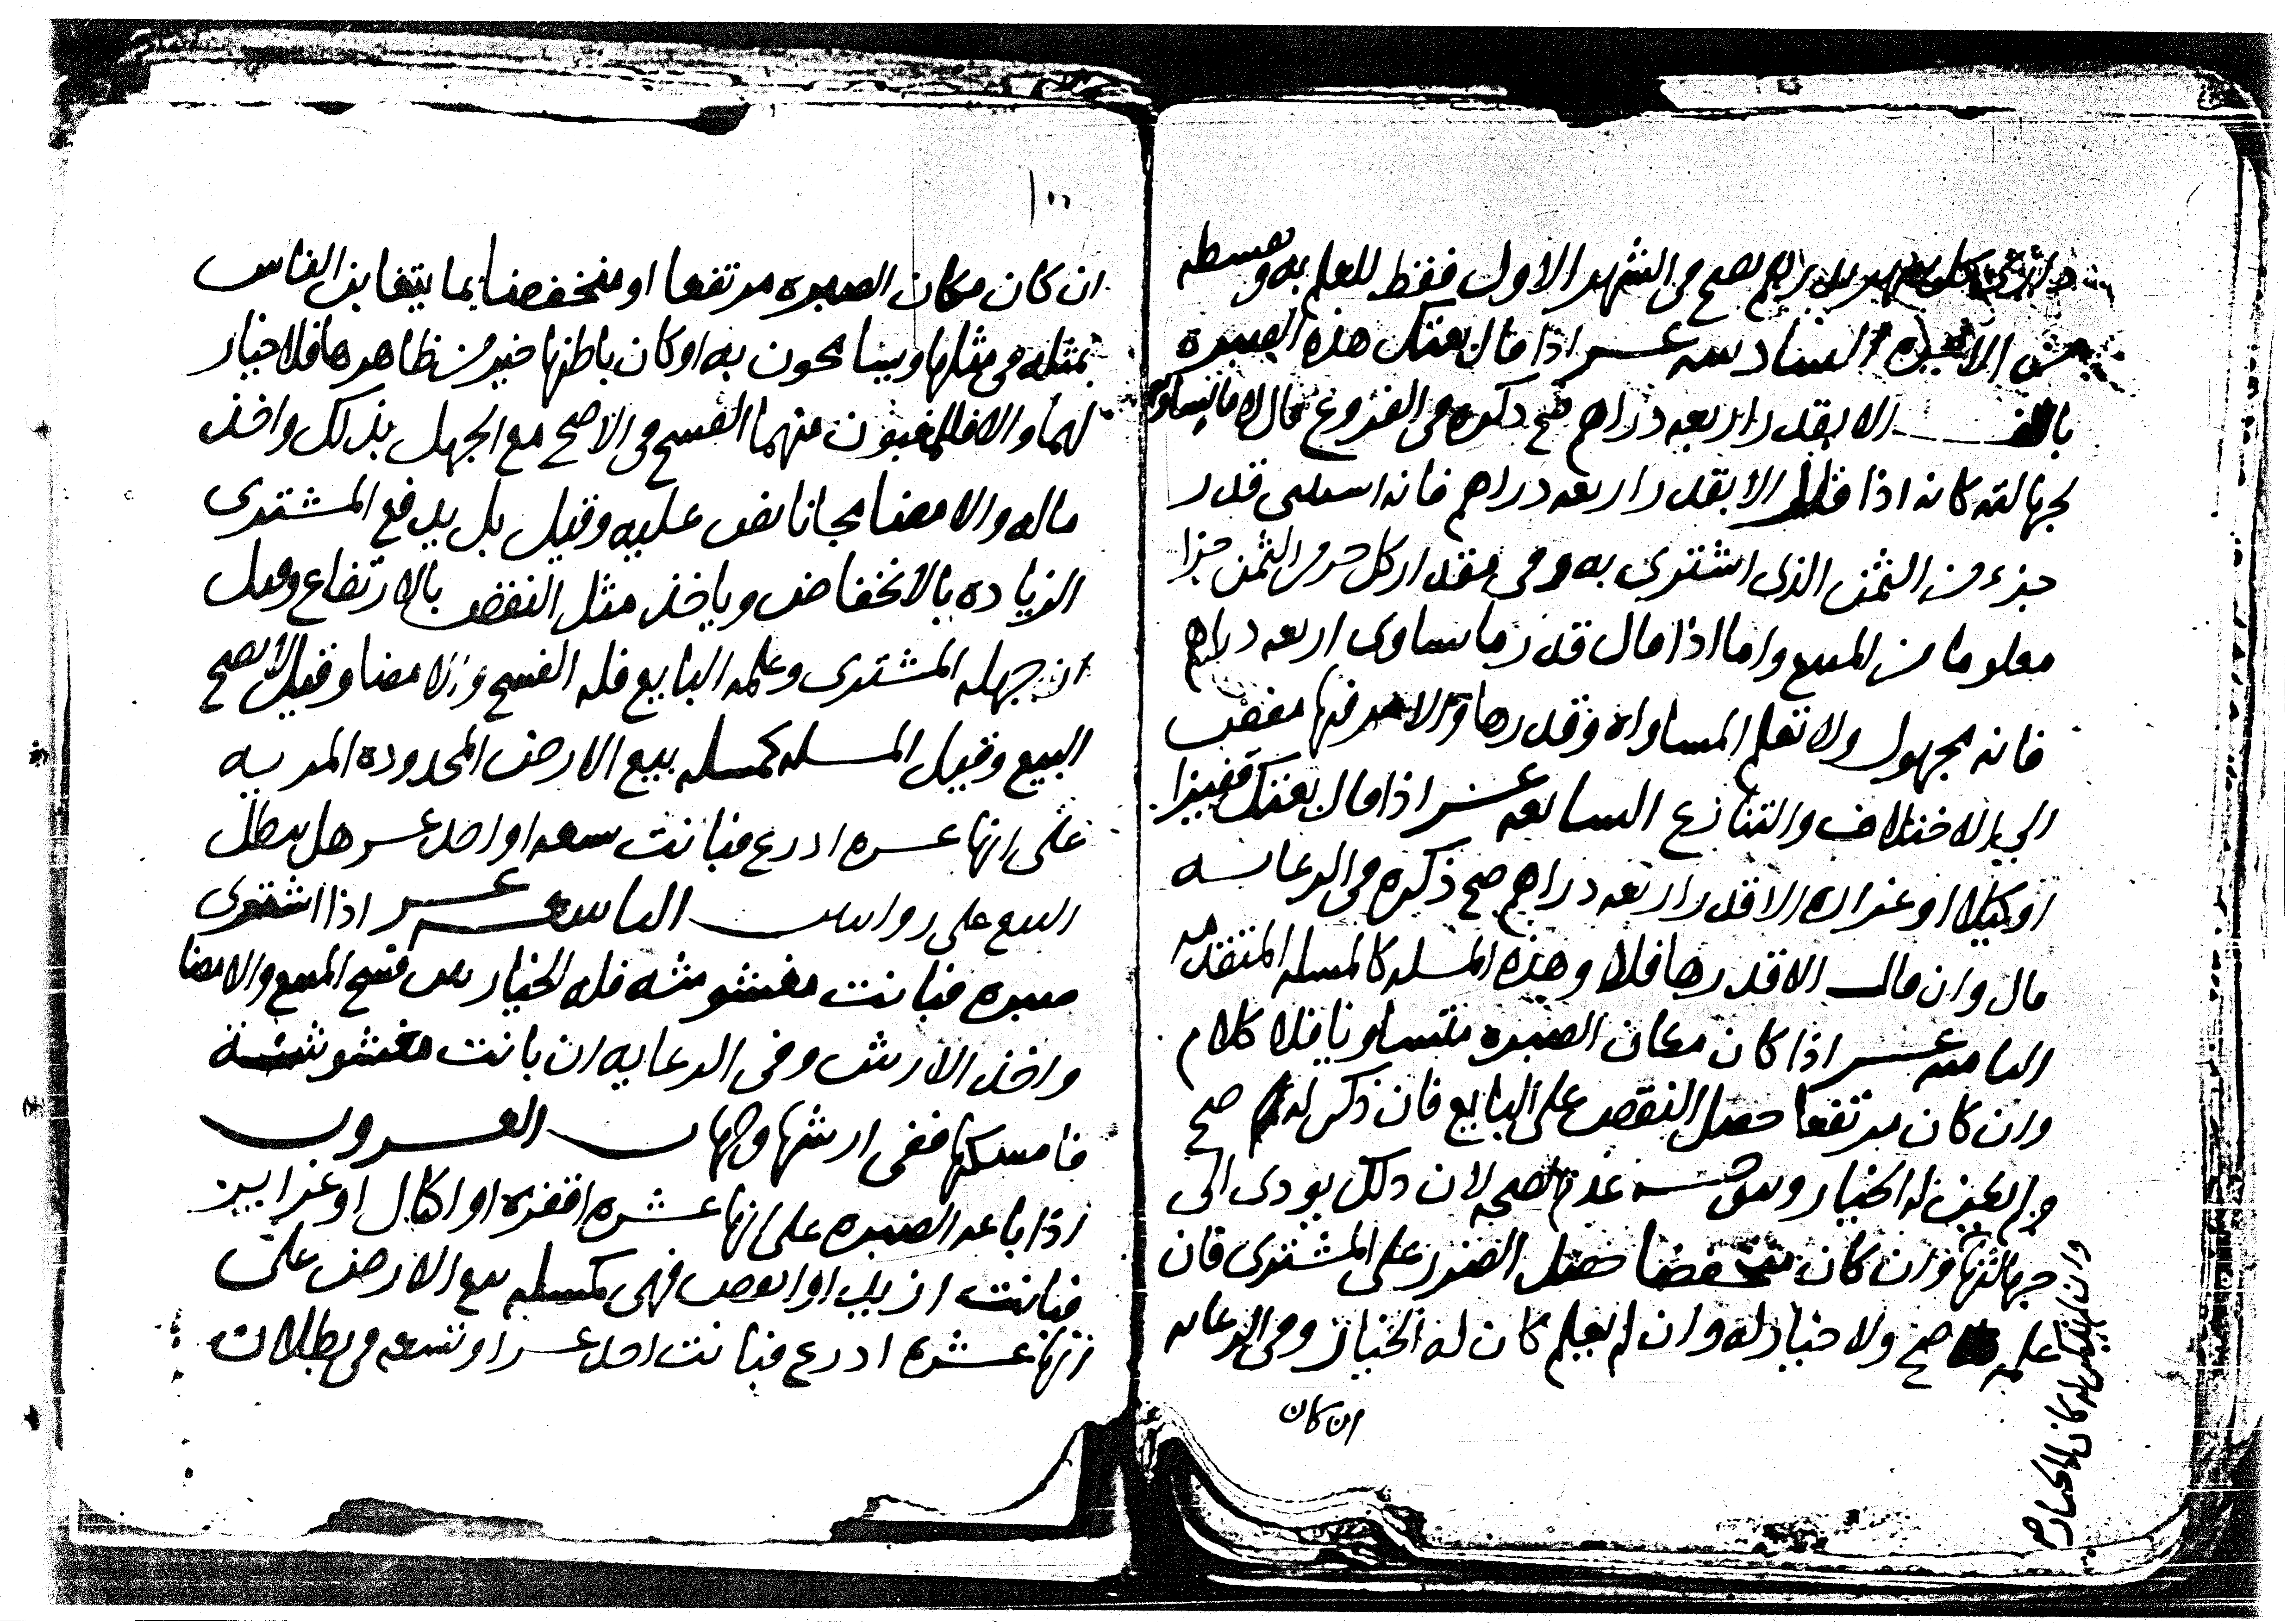 كل شهر بدرهم يصح في الشهر الاول فقط للعلم به وبقسطه
السادسه عشر اذا قال بعتك هذه الصبره
بالف الا بقدر اربعه دراهم صح ذكره في الفروع قال لا ما يساوى
لجهالته كانه اذا قال الا بقدر اربعه دراهم فانه استثنى قدر
جزء من الثمن الذى اشترى به وفي مقدار كل جزء من الثمن جزا
معلوما من المبيع واما اذا قال قدر ما يساوى اربعه دراهم
فانه مجهول ولا تعلم المساواه وقدرها والا مر فيها مفض
الى الاختلاف والتنازع السابعه عشر اذا قال بعتك قفيزا
او كيلا او غراره الا قدر اربعه دراهم صح ذكره في الرعايه
قال وان قال الا قدرها فلا وهذه المسله كالمسله المتقدمه
الثامنه عشر اذا كان مكان الصبره متساويا فلا كلام
وان كان مرتفعا حصل النقص على البايع فان ذكر له صح
ولم يكن له الخيار عدم الصحه لان ذلك يودى الى
جهالتها وان كان منخفضا حصل الضرر على المشترى فان
علمه صح ولا خيار له وان لم يعلم كان له الخيار وفي الرعايه
ان كان
وان لم يذكر له كان له الخيار صح
١٠٠
ان كان مكان الصبره مرتفعا او منخفضا بما يتغابن الناس
بمثله في مثلها ويسامحون به او كان باطنها خير من ظاهرها فلا خيار
لهما والا فللمغبون منهما الفسح في الاصح مع الجهل بذلك واخذ
ماله والامضا مجانا نص عليه وقيل بل يدفع المشترى
الزياده بالانخفاض وياخذ مثل النقص بالارتفاع وقيل
ان جهله المشترى وعلمه البايع فله الفسح والامضا وقيل لا يصح
البيع وقيل المسله كمسله بيع الارض المحدوده المربيه
على انها عشره ادرع فبانت تسعه او احد عشر هل يبطل
البيع على روايتين التاسعه عشر اذا اشترى
صبره فبانت مغشوشه فله الخيار بين فسح المبيع والامضا
واخذ الارش وفى الرعايه ان بانت مغشوشة
فامسكها ففى ارشها وجهان العشرون
اذا باعه الصبره على انها عشره اقفزه او اكيال او غرايين
فبانت ازيد او انقص فهى كمسله بيع الارض على
انها عشره ادرع فبانت احد عشر او تسعه في بطلان